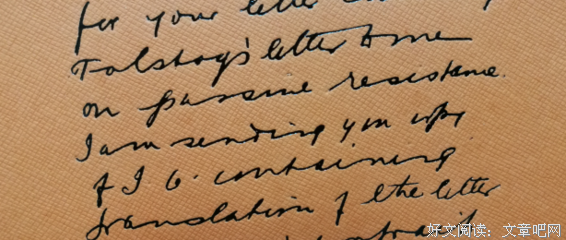 for your letter
Tolstoy's letter to me
on passive resistance.
I am sending you copy
of I. O. containing
translation of the letter
好文阅读：文章吧网